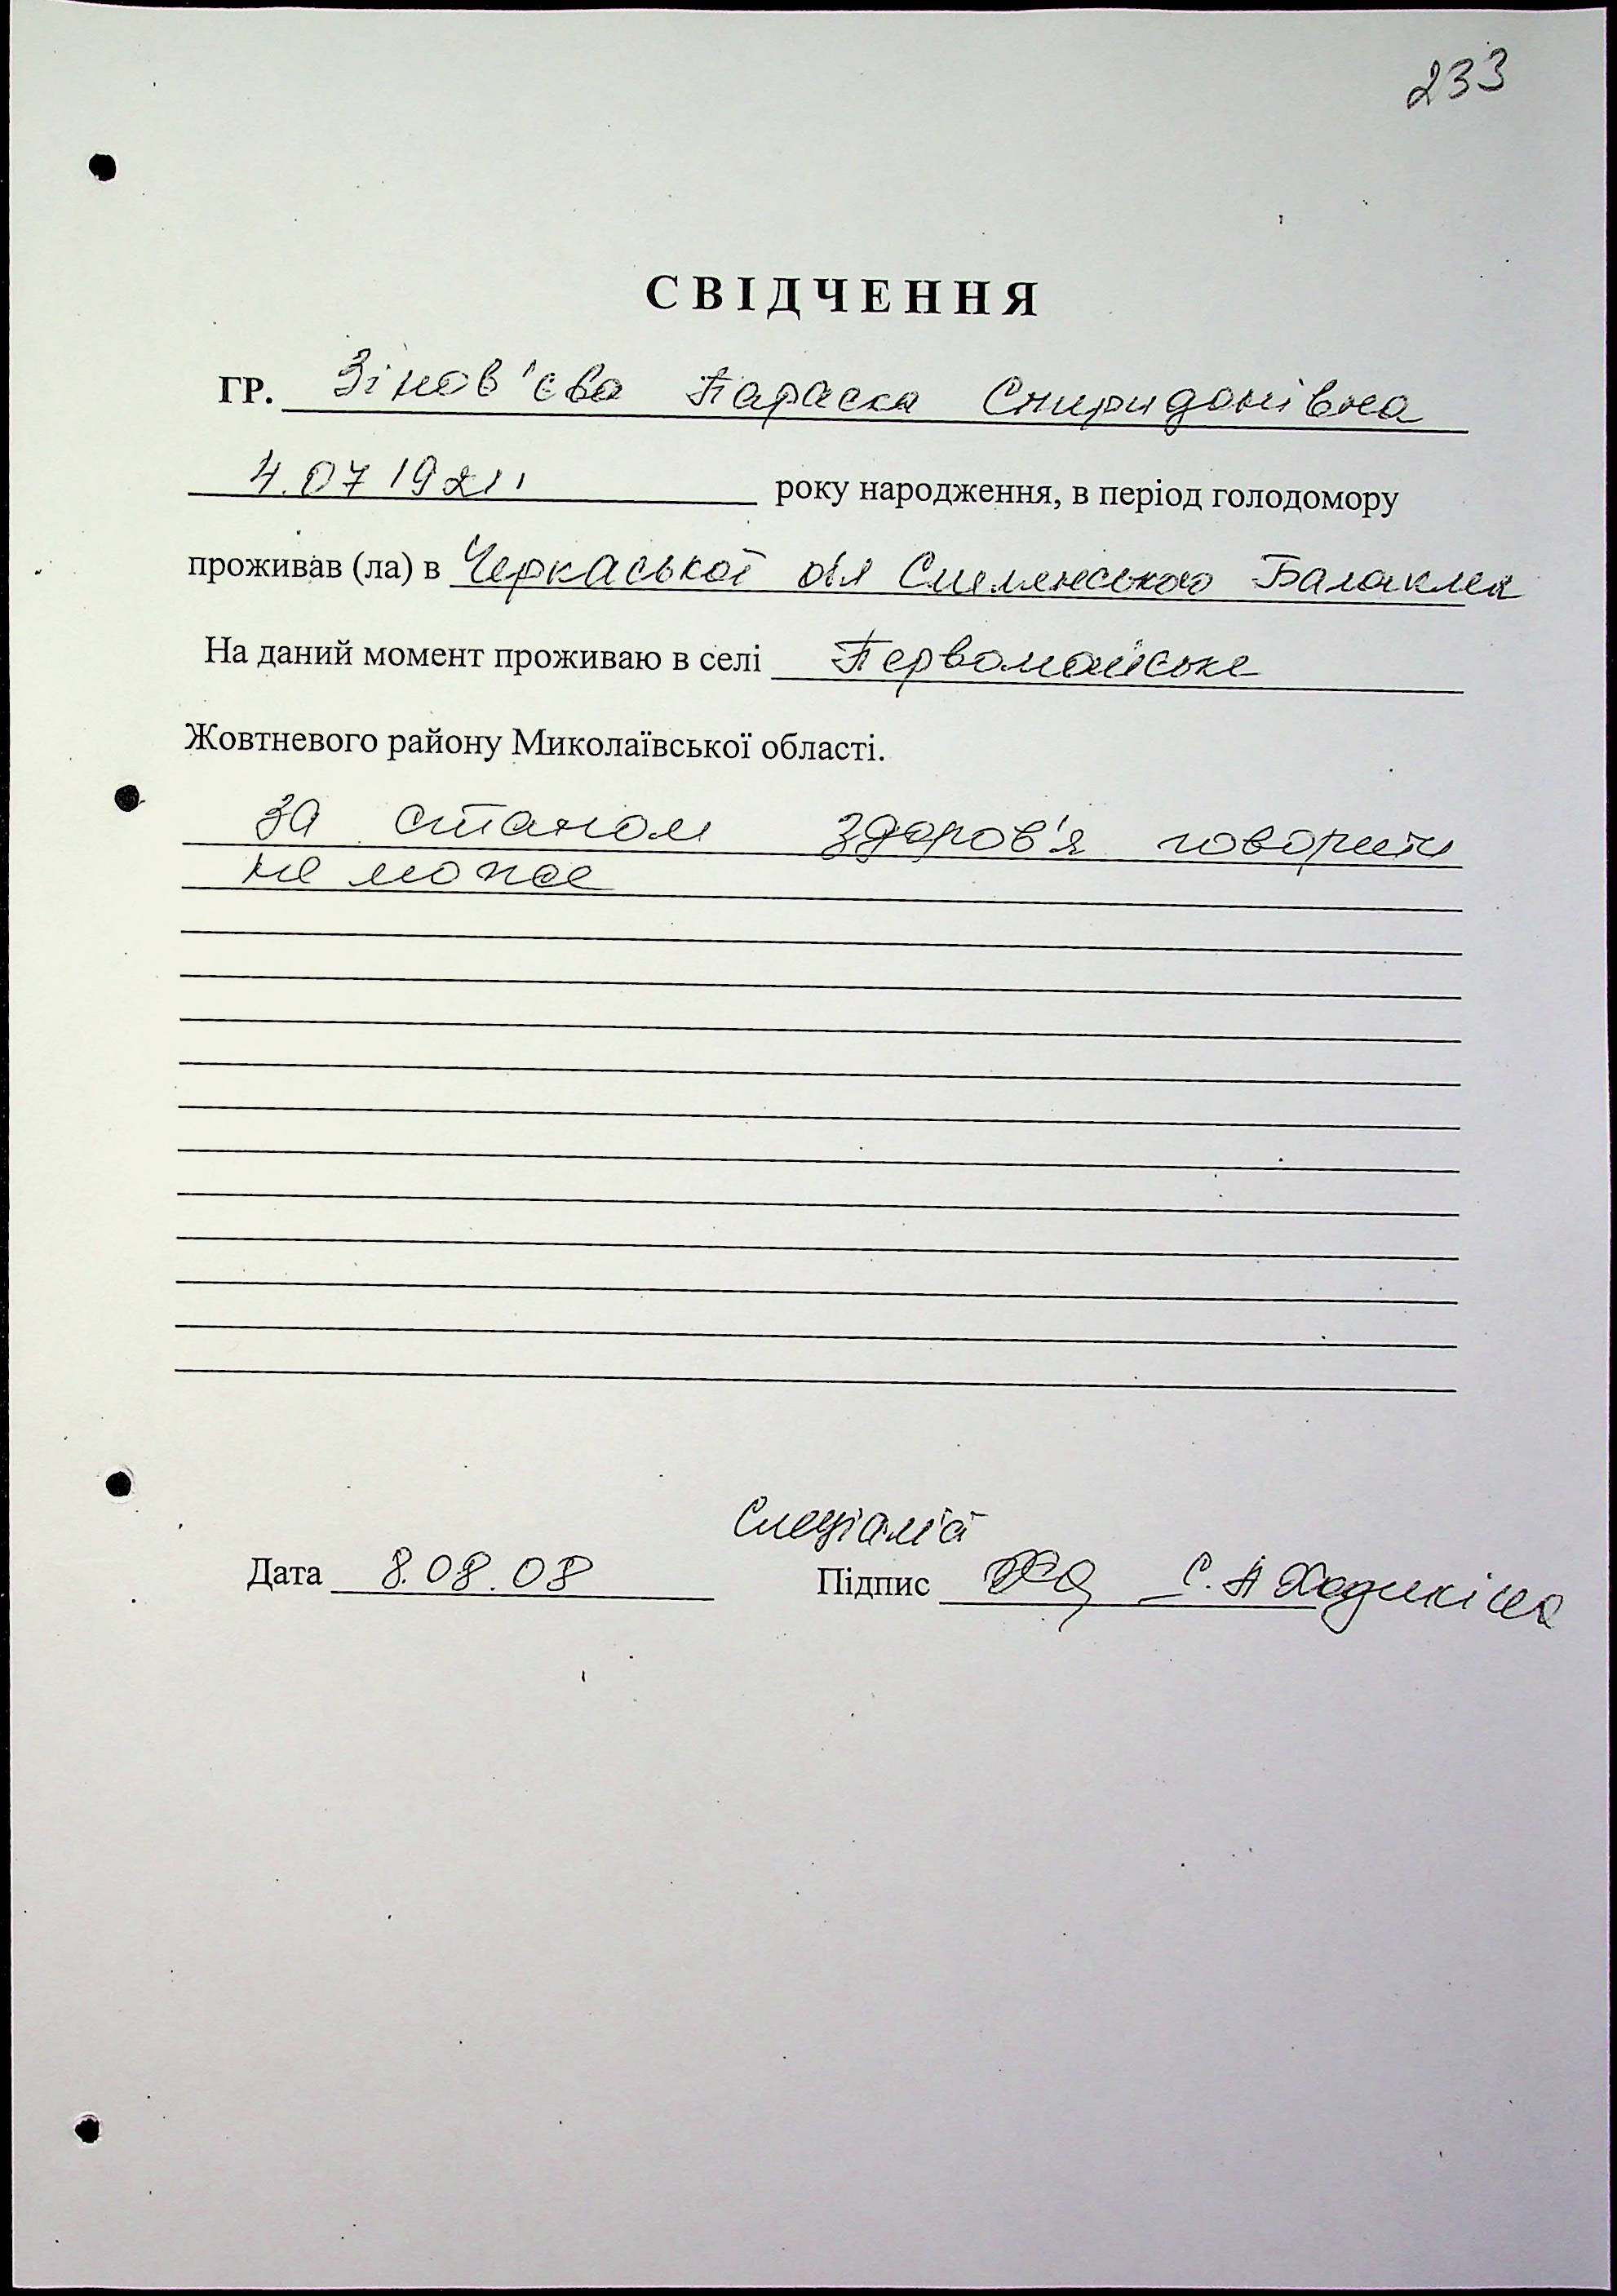 233
СВІДЧЕННЯ
ГР. Зінов'єва Параска Спиридонівна
4.07 1921 року народження, в період голодомору
проживав (ла) в Черкаської обл Смілянського Балаклея
На даний момент проживаю в селі Первомайське
Жовтневого району Миколаївської області.
за станом здоров'я говорити
не може
Спеціаліст
Дата 8.08.08 Підпис С. А